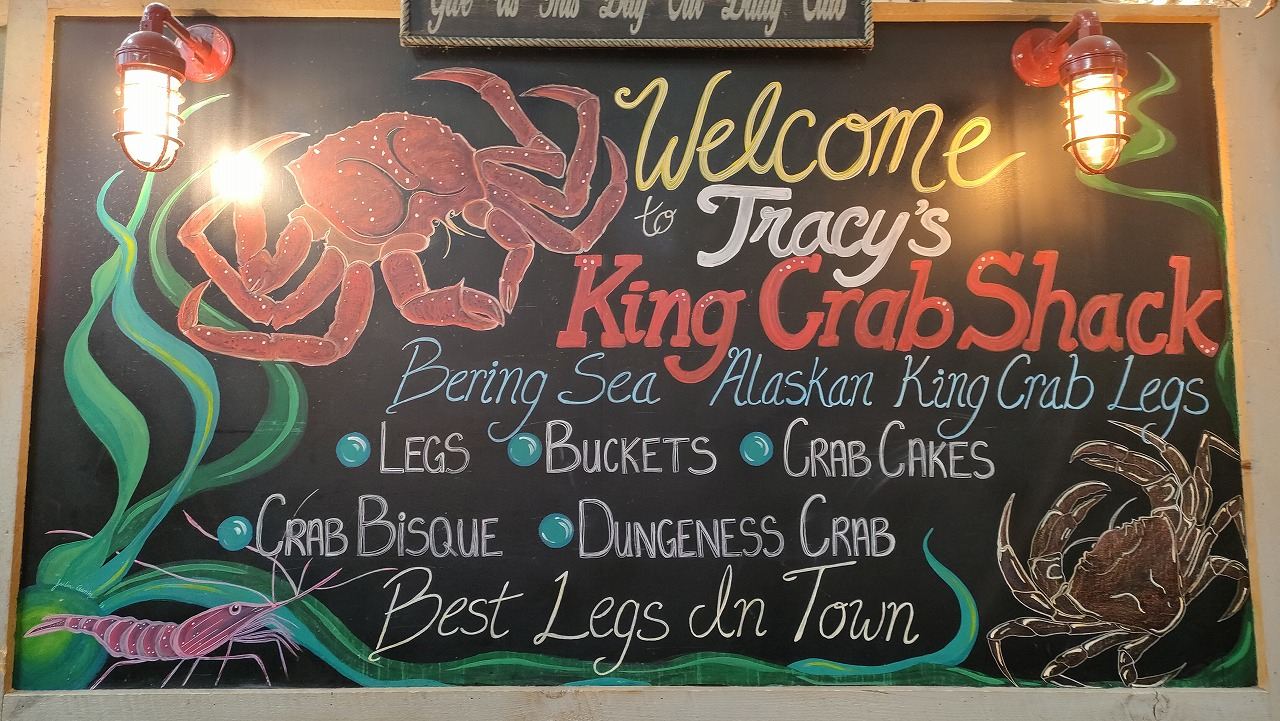 Give Us This Day Our Daily Crab
Welcome
to Tracy's
King Crab Shack
Bering Sea Alaskan King Crab Legs
LEGS BUCKETS CRAB CAKES
CRAB BISQUE DUNGENESS CRAB
Best Legs In Town